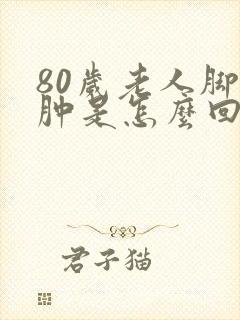 80歲老人脚
肿是怎麽回
君子猫